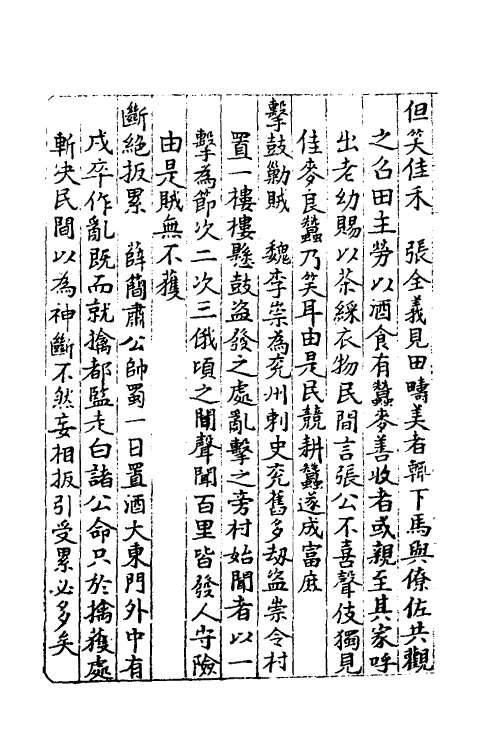 但笑佳禾　張全義見田疇美者輙下馬與僚佐共觀
之召田主勞以酒食有蠶麥善收者或親至其家呼
出老幼賜以茶綵衣物民間言張公不喜聲伎獨見
佳麥良蠶乃笑耳由是民競耕蠶遂成富庶
擊鼓勦賊　魏李崇為兖州剌史兖舊多刼盜崇令村
置一樓樓懸鼓盜發之處亂擊之旁村始聞者以一
擊為節次二次三俄頃之間聲聞百里皆發人守險
由是賊無不獲
斷絕扳累　薛簡肅公帥蜀一日置酒大東門外中有
戍卒作亂既而就擒都監走白諸公命只於擒獲處
斬决民間以為神斷不然妄相扳引受累必多矣